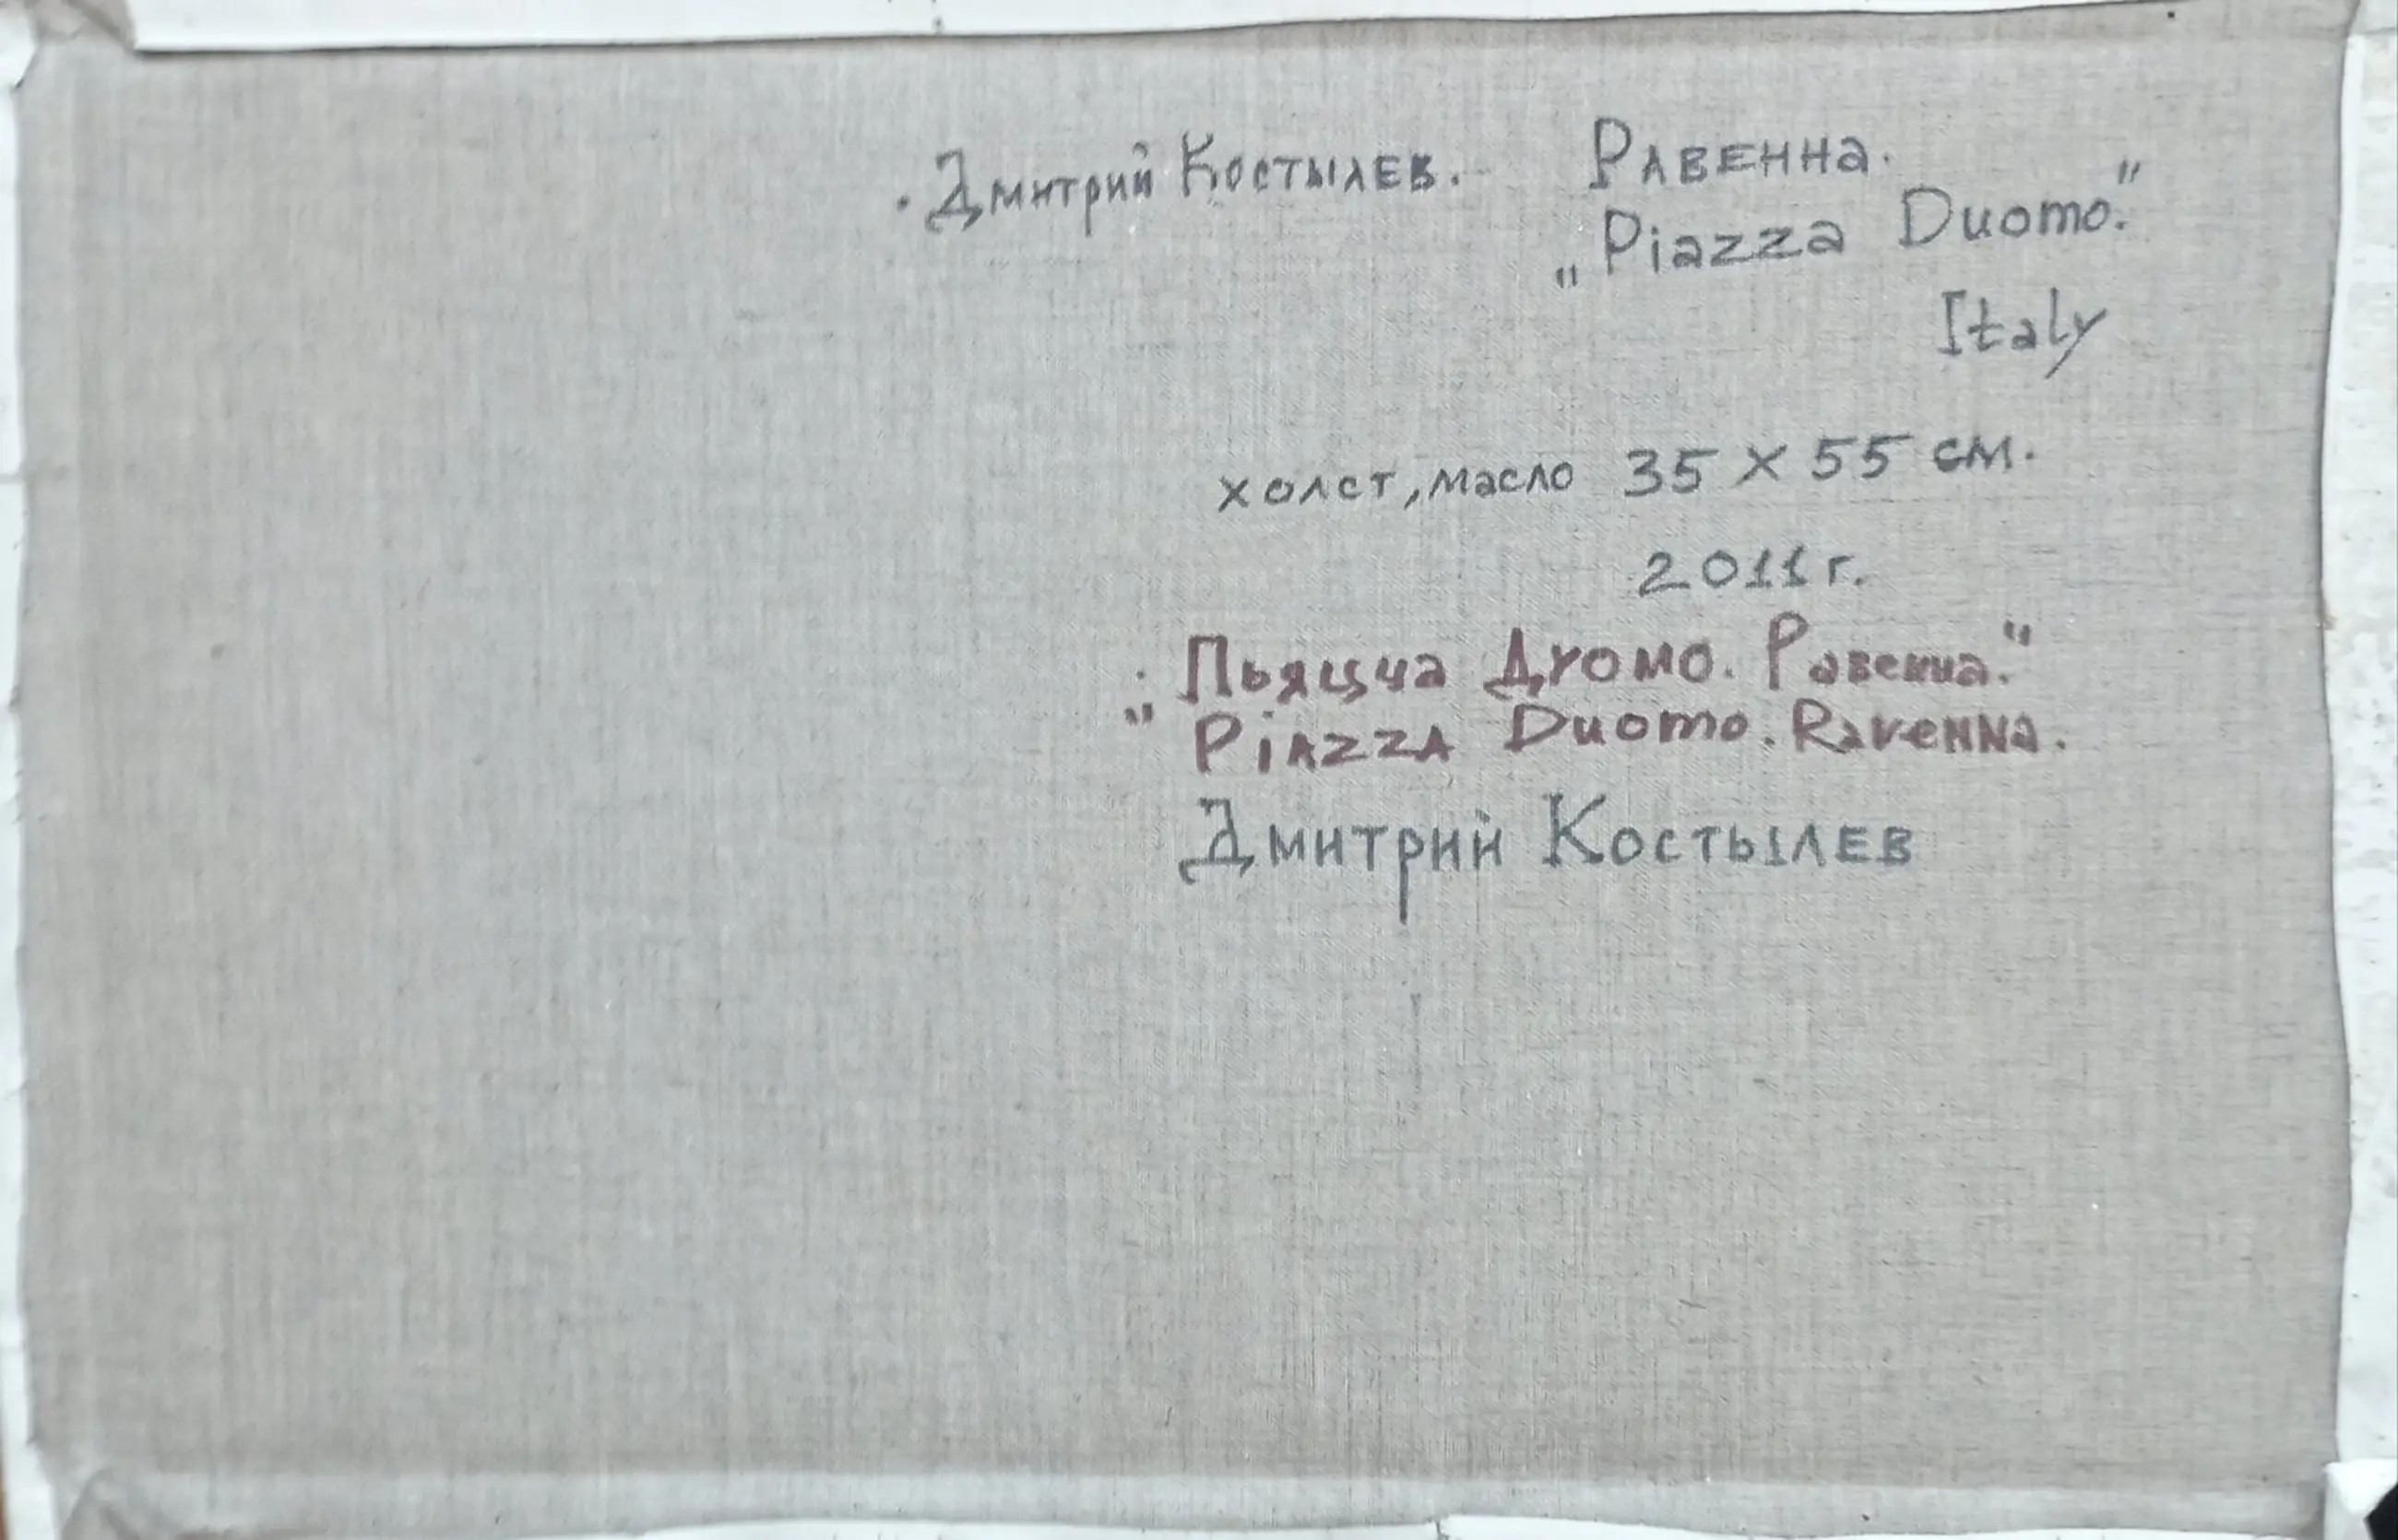 . Дмитрий Костылев. Равенна.
„Piazza Duomo."
Italy
холст, масло 35 × 55 см.
2011 г.
. Пьяцца Дуомо. Равенна."
" Piazza Duomo. Ravenna.
Дмитрий Костылев